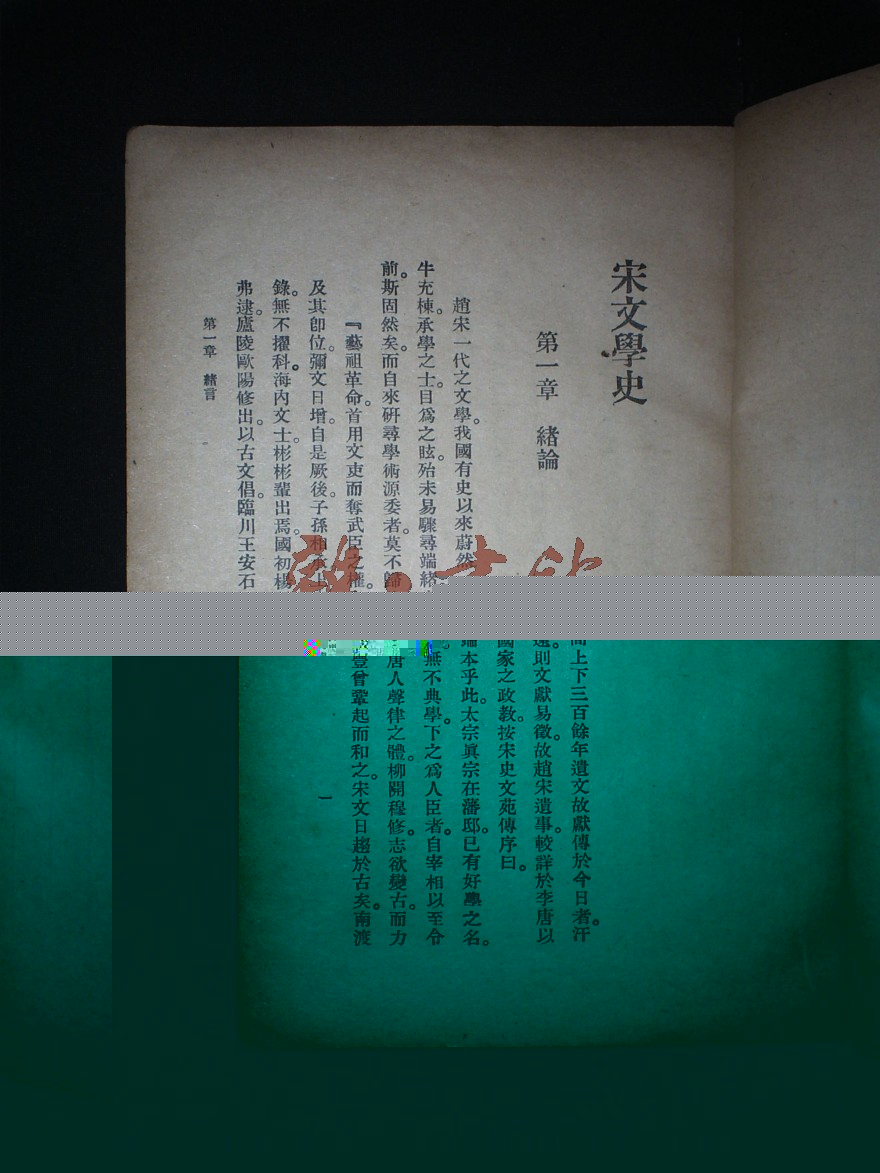 宋文學史
第一章　緒論
趙宋一代之文學。我國有史以來蔚然 間上下三百餘年遺文故獻傳於今日者。汗
牛充棟。承學之士。目爲之眩。殆未易驟尋端緒 則文獻易徵。故趙宋遺事。較詳於李唐以
前。斯固然矣。而自來硏尋學術源委者。莫不歸 國家之政敎。按宋史文苑傳序曰。
『藝祖革命。首用文吏而奪武臣之權。 端本乎此。太宗眞宗在藩邸。已有好學之名。
及其卽位。彌文日增。自是厥後。子孫相承。上 無不典學。下之爲人臣者。自宰相以至令
錄。無不擢科。海內文士。彬彬輩出焉。國初楊 唐人聲律之體。柳開穆修。志欲變古。而力
弗逮。廬陵歐陽修出。以古文倡。臨川王安石 曾鞏起而和之。宋文日趨於古矣。南渡
第一章　緒言
一